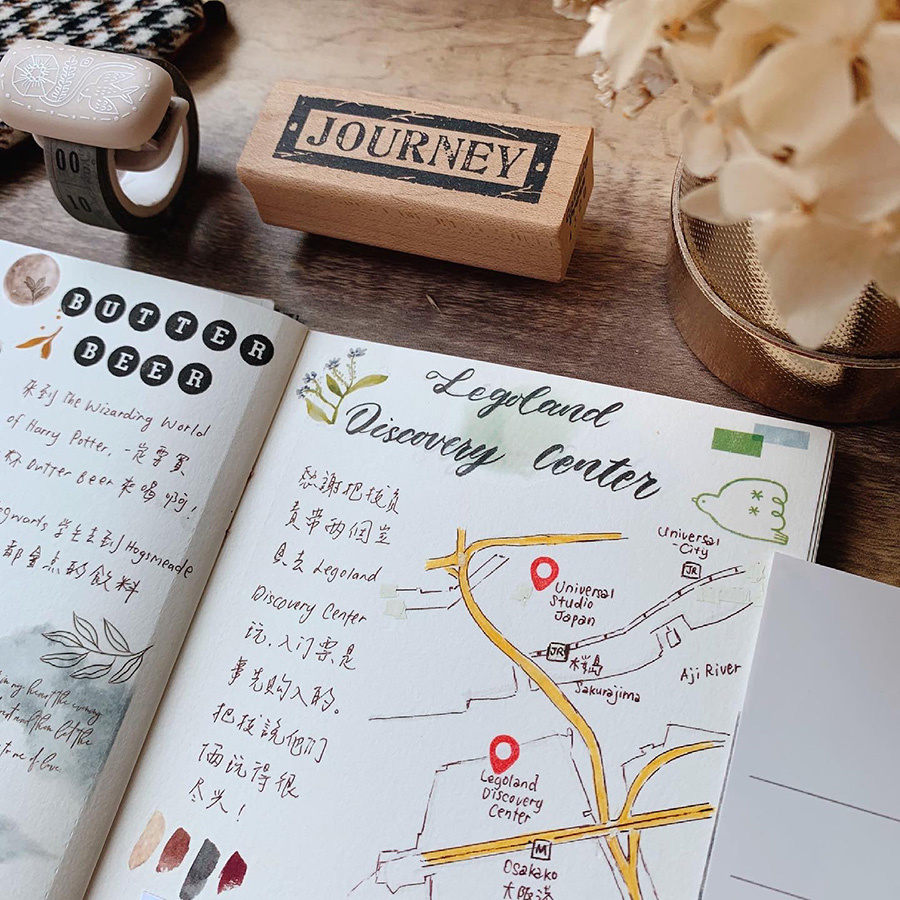 00
10
JOURNEY
BUTTER
BEER
来到 The Wizarding World
of Harry Potter, 一定要買
杯 Butter Beer 来喝啊!
学生去到 Hogsmeade
都會点的飲料
Legoland
Discovery Center
感謝把拔負
責带两個豆
豆去 Legoland
Discovery Center
玩,入门票是
事先购入的。
把拔說他们
俩玩得很
尽兴!
Universal
-City
JR
Universal
Studio
Japan
JR
Sakurajima
Aji River
Legoland
Discovery
Center
M
Osakako
大阪港